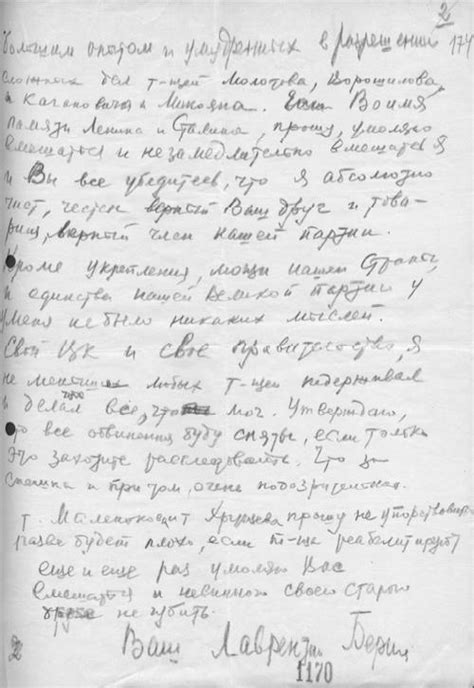 2
174
большим опытом и умудренных в разрешении
сложных дел т-щей Молотова, Ворошилова,
Кагановича и Микояна. Во имя
памяти Ленина и Сталина, прошу, умоляю
вмешаться и незамедлительно вмешаться
и Вы все убедитесь, что я абсолютно
чист, честен верный Ваш друг и това-
рищ, верный член нашей партии.
Кроме укрепления, мощи нашей Страны,
и единства нашей Великой партии у
меня не было никаких мыслей.
Свой ЦК и свое правительство, я
не меньше любых т-щей поддерживал
и делал все, что мог. Утверждаю,
что все обвинения будут сняты, если только
это захотите расследовать. Что за
спешка и притом, очень подозрительная.
т. Маленкова и т. Хрущева прошу не упорствовать
разве будет плохо, если т-ща реабилитируют
еще и еще раз умоляю Вас
вмешаться и невинного своего старого
друга не губить.
Ваш Лаврентий Берия
1170
2